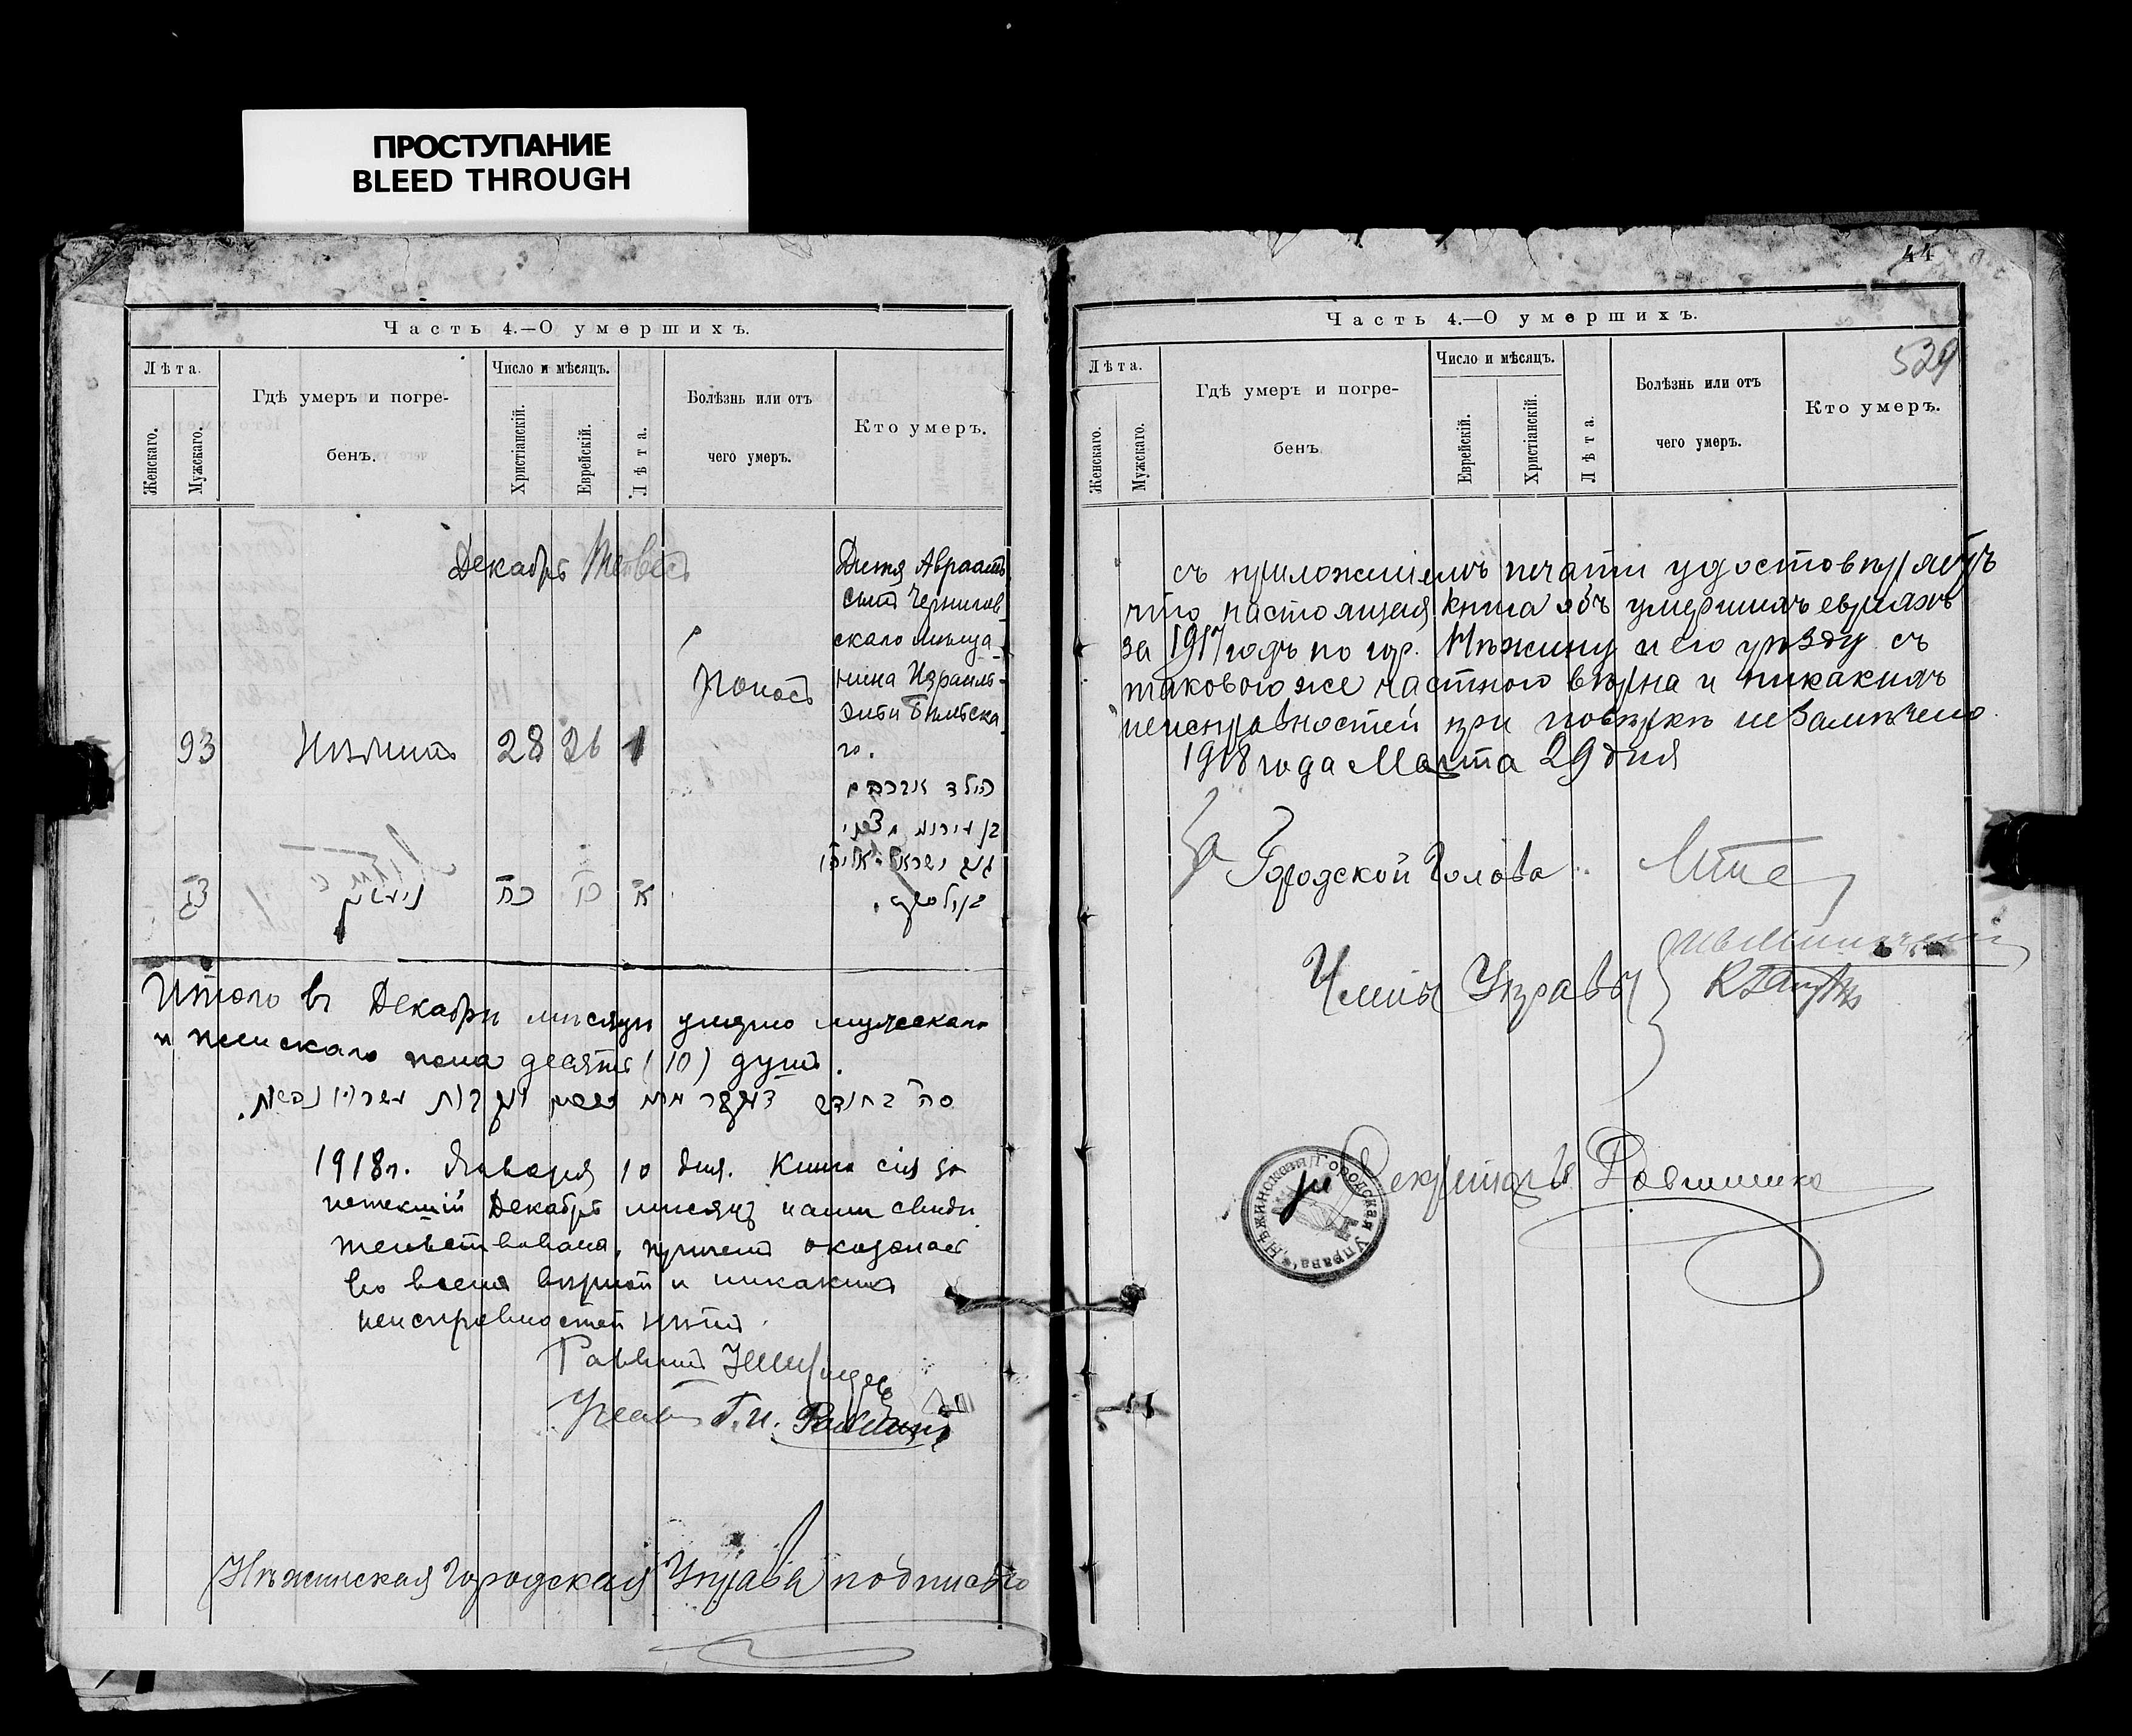 ПРОСТУПАНИЕ
BLEED THROUGH
Часть 4.—О умершихъ.
Лѣта.
Женскаго.
Мужскаго.
Гдѣ умеръ и погре-
бенъ.
Число и мѣсяцъ.
Христіанскій.
Еврейскій.
Лѣта.
Болѣзнь или отъ
чего умеръ.
Кто умеръ.
Декабрь Тейвесъ
93
Нѣжинъ
28
26
1
Поносъ
Дитя Авраамъ
сынъ Чернигов
скаго мѣща-
нина Израиль-
го.
הילד אברהם
צג
ניעזין
כח
כו
א
Итого въ Декабрѣ мѣсяцѣ умерло мужескаго
и женскаго пола десять (10) душъ.
1918 г. Января 10 дня. Книга сія за
истекшій Декабрь мѣсяцъ нами свидѣ
тельствована, причемъ оказалась
во всемъ вѣрной и никакихъ
неисправностей нѣтъ.
Раввинъ
Г. И.
Нѣжинская Городская Управа подписью
44
529
Часть 4.—О умершихъ.
Лѣта.
Женскаго.
Мужскаго.
Гдѣ умеръ и погре-
бенъ
Число и мѣсяцъ.
Еврейскій.
Христіанскій.
Лѣта.
Болѣзнь или отъ
чего умеръ.
Кто умеръ.
съ приложеніемъ печати удостовѣряетъ
что настоящая книга объ умершихъ евреяхъ
за 1917 годъ по гор. Нѣжину и его уѣзду съ
таковою же частною вѣрна и никакихъ
неисправностей при повѣркѣ не замѣчено.
1918 года Марта 29 дня
За Городской Голова
Члены Управы
Секретарь
Нѣжинская Городская Управа